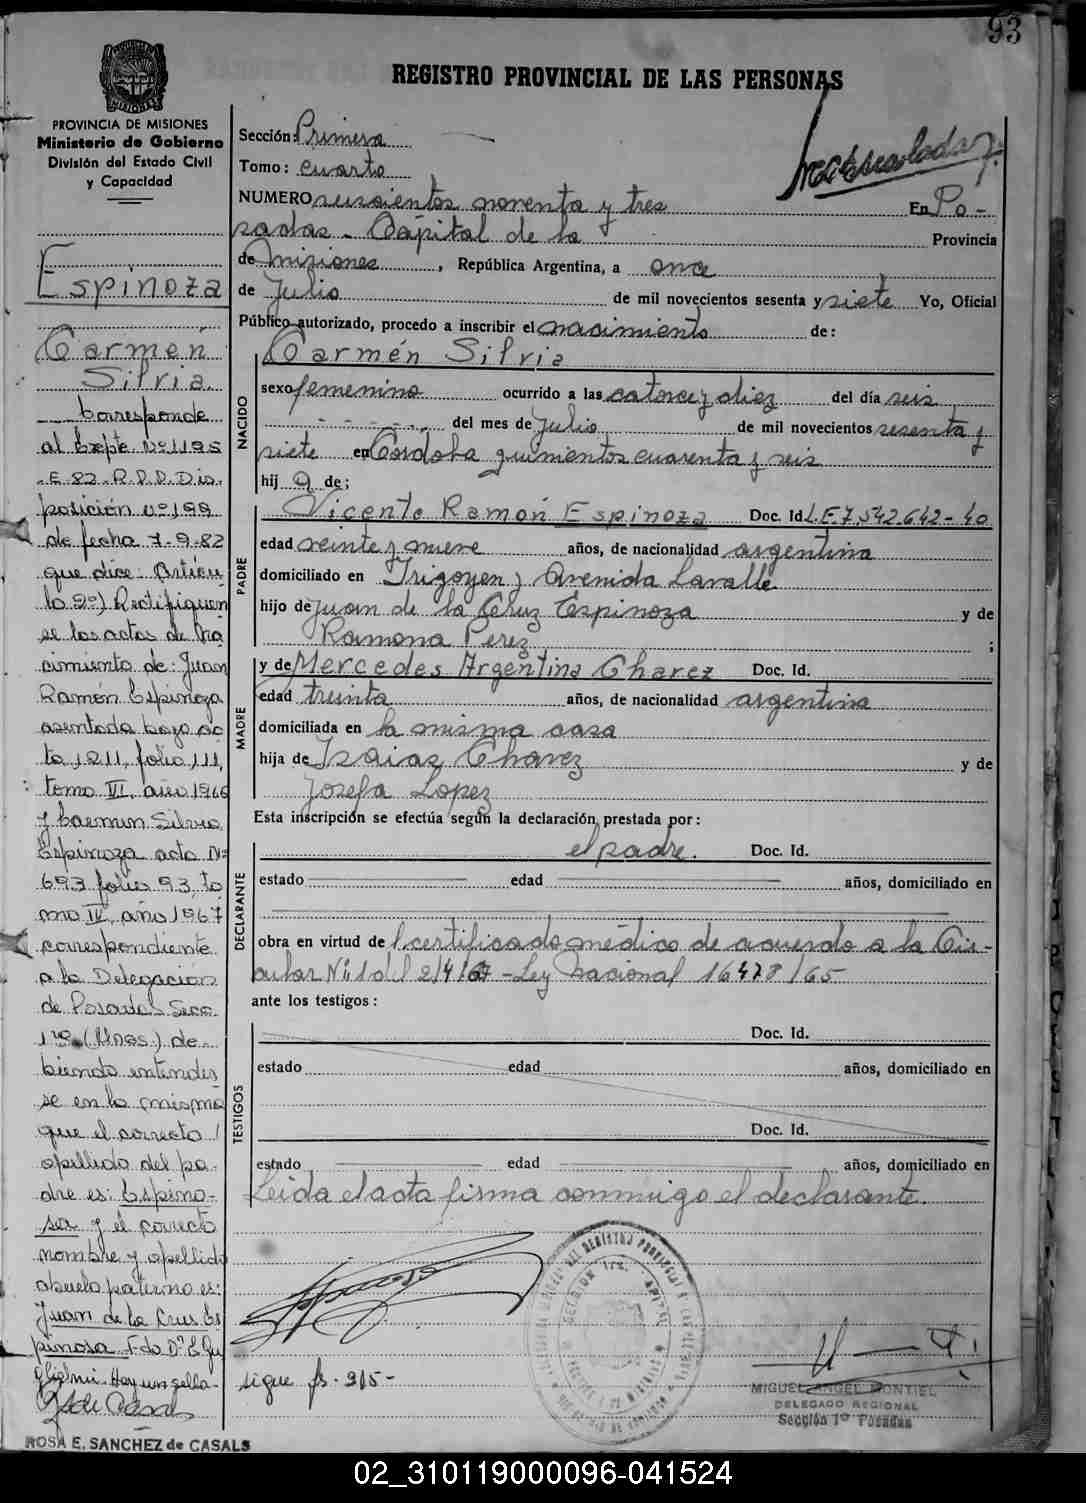 93
REGISTRO PROVINCIAL DE LAS PERSONAS
PROVINCIA DE MISIONES
Ministerio de Gobierno
División del Estado Civil
y Capacidad
Sección: Primera
Tomo: cuarto
NUMERO seiscientos noventa y tres En Po-
sadas - Capital de la Provincia
de Misiones, República Argentina, a once
de Julio de mil novecientos sesenta y siete Yo, Oficial
Público autorizado, procedo a inscribir el nacimiento de:
NACIDO
Carmén Silvia
sexo femenino ocurrido a las catorce y diez del día seis
del mes de Julio de mil novecientos sesenta y
siete en Córdoba quinientos cuarenta y seis
hij a de:
PADRE
Vicente Ramón Espinoza Doc. Id. L.E.7.542.642-40
edad veinte y nueve años, de nacionalidad argentina
domiciliado en Irigoyen y Avenida Lavalle
hijo de Juan de la Cruz Espinoza y de
Ramona Perez ;
MADRE
y de Mercedes Argentina Chavez Doc. Id.
edad treinta años, de nacionalidad argentina
domiciliada en la misma casa
hija de Isaias Chavez y de
Josefa Lopez
Esta inscripción se efectúa según la declaración prestada por:
DECLARANTE
el padre. Doc. Id.
estado edad años, domiciliado en
obra en virtud de l certificado médico de acuerdo a la Cir-
cular Nº 1 del 2/4/67 - Ley Nacional 16478/65
ante los testigos:
TESTIGOS
Doc. Id.
estado edad años, domiciliado en
Doc. Id.
estado edad años, domiciliado en
Leida el acta firma conmigo el declarante.
sigue fs. 95-
MIGUEL ANGEL MONTIEL
DELEGADO REGIONAL
Sección 1º Posadas
Espinoza
Carmén
Silvia
Corresponde
al Expte Nº 1195
E-82. R.P.P. Dis
posición nº 199
de fecha 7-9-82
que dice: Articu
lo 2º) Rectifiquen
se las actas de na
cimiento de: Juan
Ramón Espinoza
asentada bajo ac
ta 1211, folio 111,
tomo VI, año 1966
y Carmen Silvia
Espinoza acta Nº
693 folio 93, to
mo IV, año 1967
correspondiente
a la Delegación
de Posadas Secc.
1ra. (Mnes.) de-
biendo entender
se en la misma
que el correcto
apellido del pa-
dre es: Espino-
sa y el correcto
nombre y apellido
abuelo paterno es:
Juan de la Cruz Es
pinosa. Fdo Dr. E. Gu
glielmi. Hay un sello.
ROSA E. SANCHEZ de CASALS
02_310119000096-041524